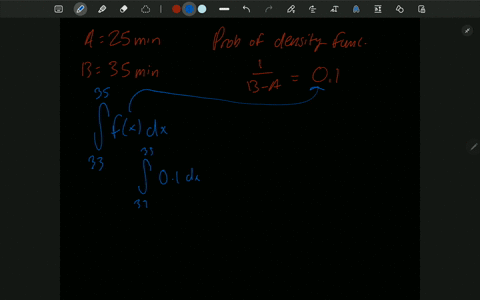 A = 25 min
Prob of density func.
B = 35 min
1/B-A = 0.1
∫ 35 33 f(x) dx
∫ 33 33 0.1 dx